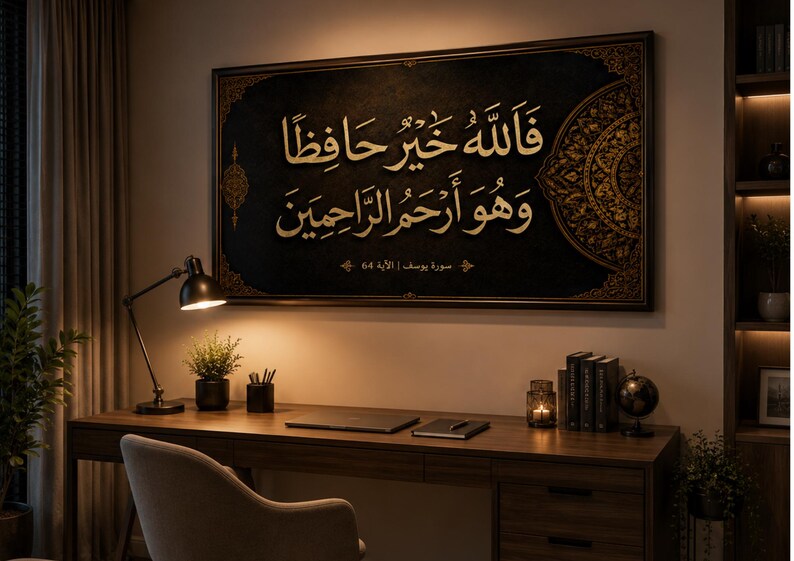 فَاَللَّهُ خَيْرٌ حَافِظًا
وَهُوَ أَرْحَمُ الرَّاحِمِينَ
سورة يوسف | الآية 64